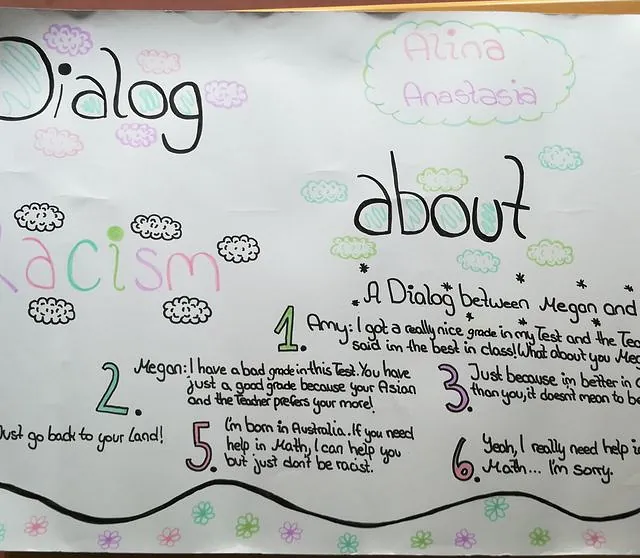 Dialog
Alina
Anastasia
about
Racism
A Dialog between Megan and
1. Amy: I got a really nice grade in my Test and the Tea
said im the best in class! What about you Meg
2. Megan: I have a bad grade in this Test. You have
just a good grade because your Asian
and the Teacher prefers your more!
3. Just because im better in
than you, it doesn't mean to be
Just go back to your Land!
5. I'm born in Australia. If you need
help in Math, I can help you
but just don't be racist.
6. Yeah, I really need help in
Math... I'm sorry.